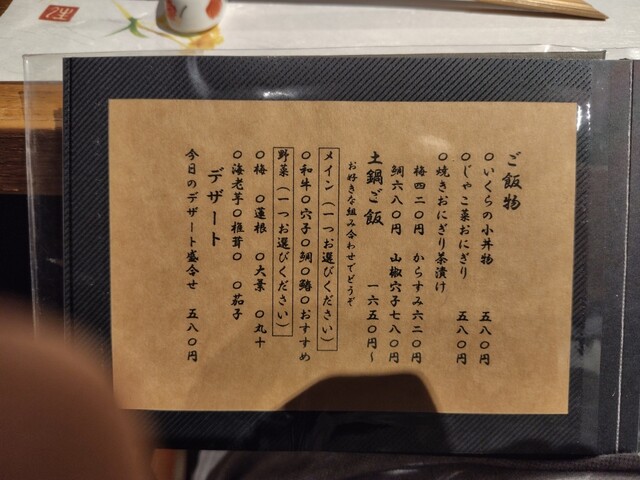 ご飯物
○いくらの小丼物 五八〇円
○じゃこ菜おにぎり 五八〇円
○焼きおにぎり茶漬け
梅四二〇円 からすみ六二〇円
鯛六八〇円 山椒穴子七八〇円
土鍋ご飯 一六五〇円〜
お好きな組み合わせでどうぞ
メイン(一つお選びください)
○和牛○穴子○鯛○鰆○おすすめ
野菜(一つお選びください)
○梅 ○蓮根 ○大葉 ○丸十
○海老芋○椎茸○ ○茄子
デザート
今日のデザート盛合せ 五八〇円